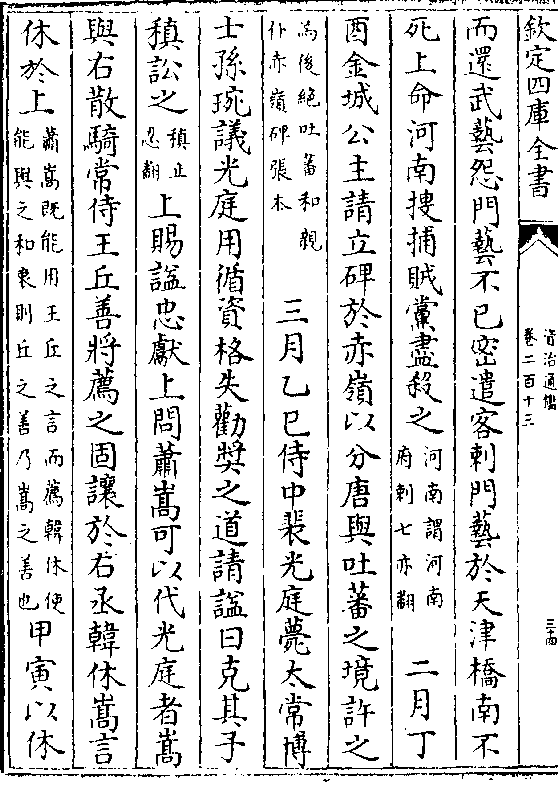 欽定四庫全書
資治通鑑
卷二百十三
三十四
而還武藝怨門藝不已密遣客刺門藝於天津橋南不
死上命河南搜捕賊黨盡殺之河南謂河南府刺七亦翻二月丁
酉金城公主請立碑於赤嶺以分唐與吐蕃之境許之
為後絶吐蕃和親仆赤嶺碑張本三月乙巳侍中裴光庭薨太常博
士孫琬議光庭用循資格失勸奬之道請諡曰克其子
稹訟之稹止忍翻上賜諡忠獻上問蕭嵩可以代光庭者嵩
與右散騎常侍王丘善將薦之固讓於右丞韓休嵩言
休於上蕭嵩既能用王丘之言而薦韓休使能與之和衷則丘之善乃嵩之善也甲寅以休